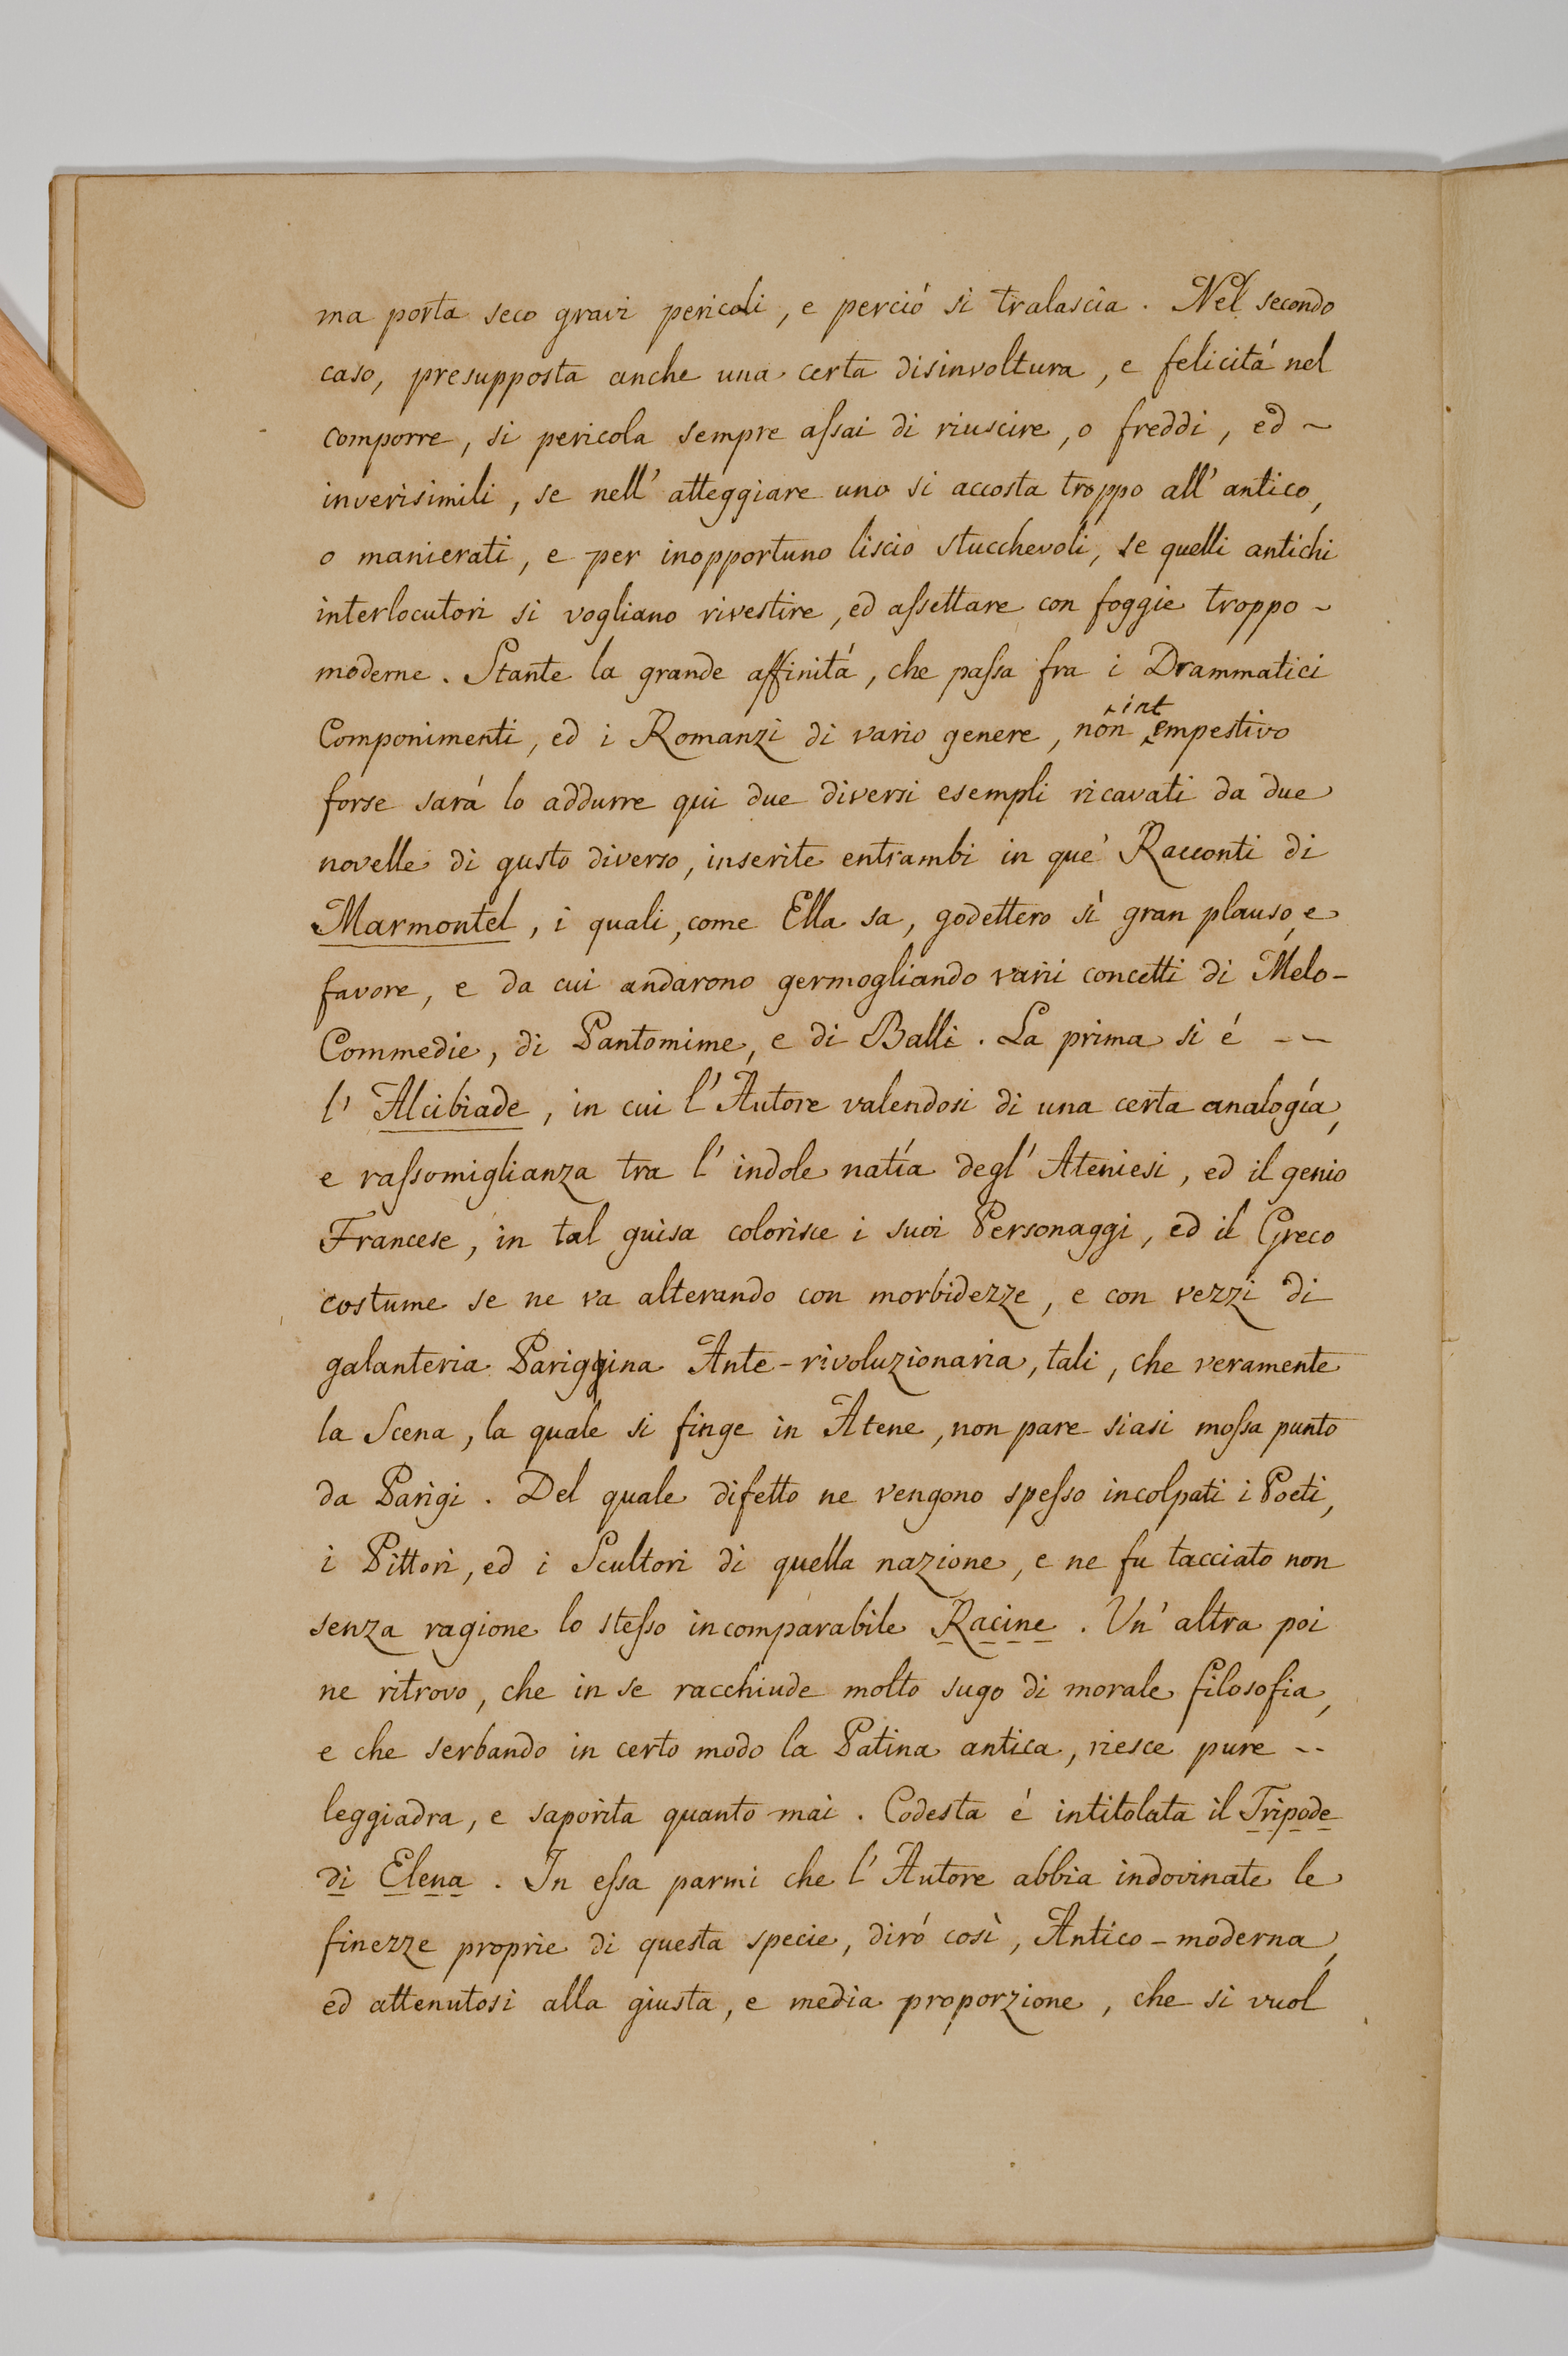 ma porta seco gravi pericoli, e perció si tralascia. Nel secondo
caso, presupposta anche una certa disinvoltura, e felicitá nel
comporre, si pericola sempre aſsai di riuscire, o freddi, ed ~
inverisimili, se nell' atteggiare uno si accosta troppo all' antico,
o manierati, e per inopportuno liscio stucchevoli, se quelli antichi
interlocutori si vogliano rivestire, ed aſsettare con foggie troppo ~
moderne. Stante la grande affinitá, che paſsa fra i Drammatici
Componimenti, ed i Romanzi di vario genere, non intempestivo
forse sará lo addurre qui due diversi esempli ricavati da due
novelle di gusto diverso, inserite entrambi in que' Racconti di
Marmontel, i quali, come Ella sa, godettero sì gran plauso, e
favore, e da cui andarono germogliando varii concetti di Melo-
Commedie, di Pantomime, e di Balli. La prima si é -~
l' Alcibiade, in cui l' Autore valendosi di una certa analogía,
e raſsomiglianza tra l' indole natía degl' Ateniesi, ed il genio
Francese, in tal guisa colorisce i suoi Personaggi, ed il Greco
costume se ne va alterando con morbidezze, e con vezzi di
galanteria Pariggina Ante-rivoluzionaria, tali, che veramente
la Scena, la quale si finge in Atene, non pare siasi moſsa punto
da Parigi. Del quale difetto ne vengono speſso incolpati i Poeti,
i Pittori, ed i Scultori di quella nazione, e ne fu tacciato non
senza ragione lo steſso incomparabile Racine. Un' altra poi
ne ritrovo, che in se racchiude molto sugo di morale filosofia,
e che serbando in certo modo la Patina antica, riesce pure --
leggiadra, e saporita quanto mai. Codesta é intitolata il Tripode
di Elena. In eſsa parmi che l' Autore abbia indovinate le
finezze proprie di questa specie, diró così, Antico-moderna,
ed attenutosi alla giusta, e media proporzione, che si vuol